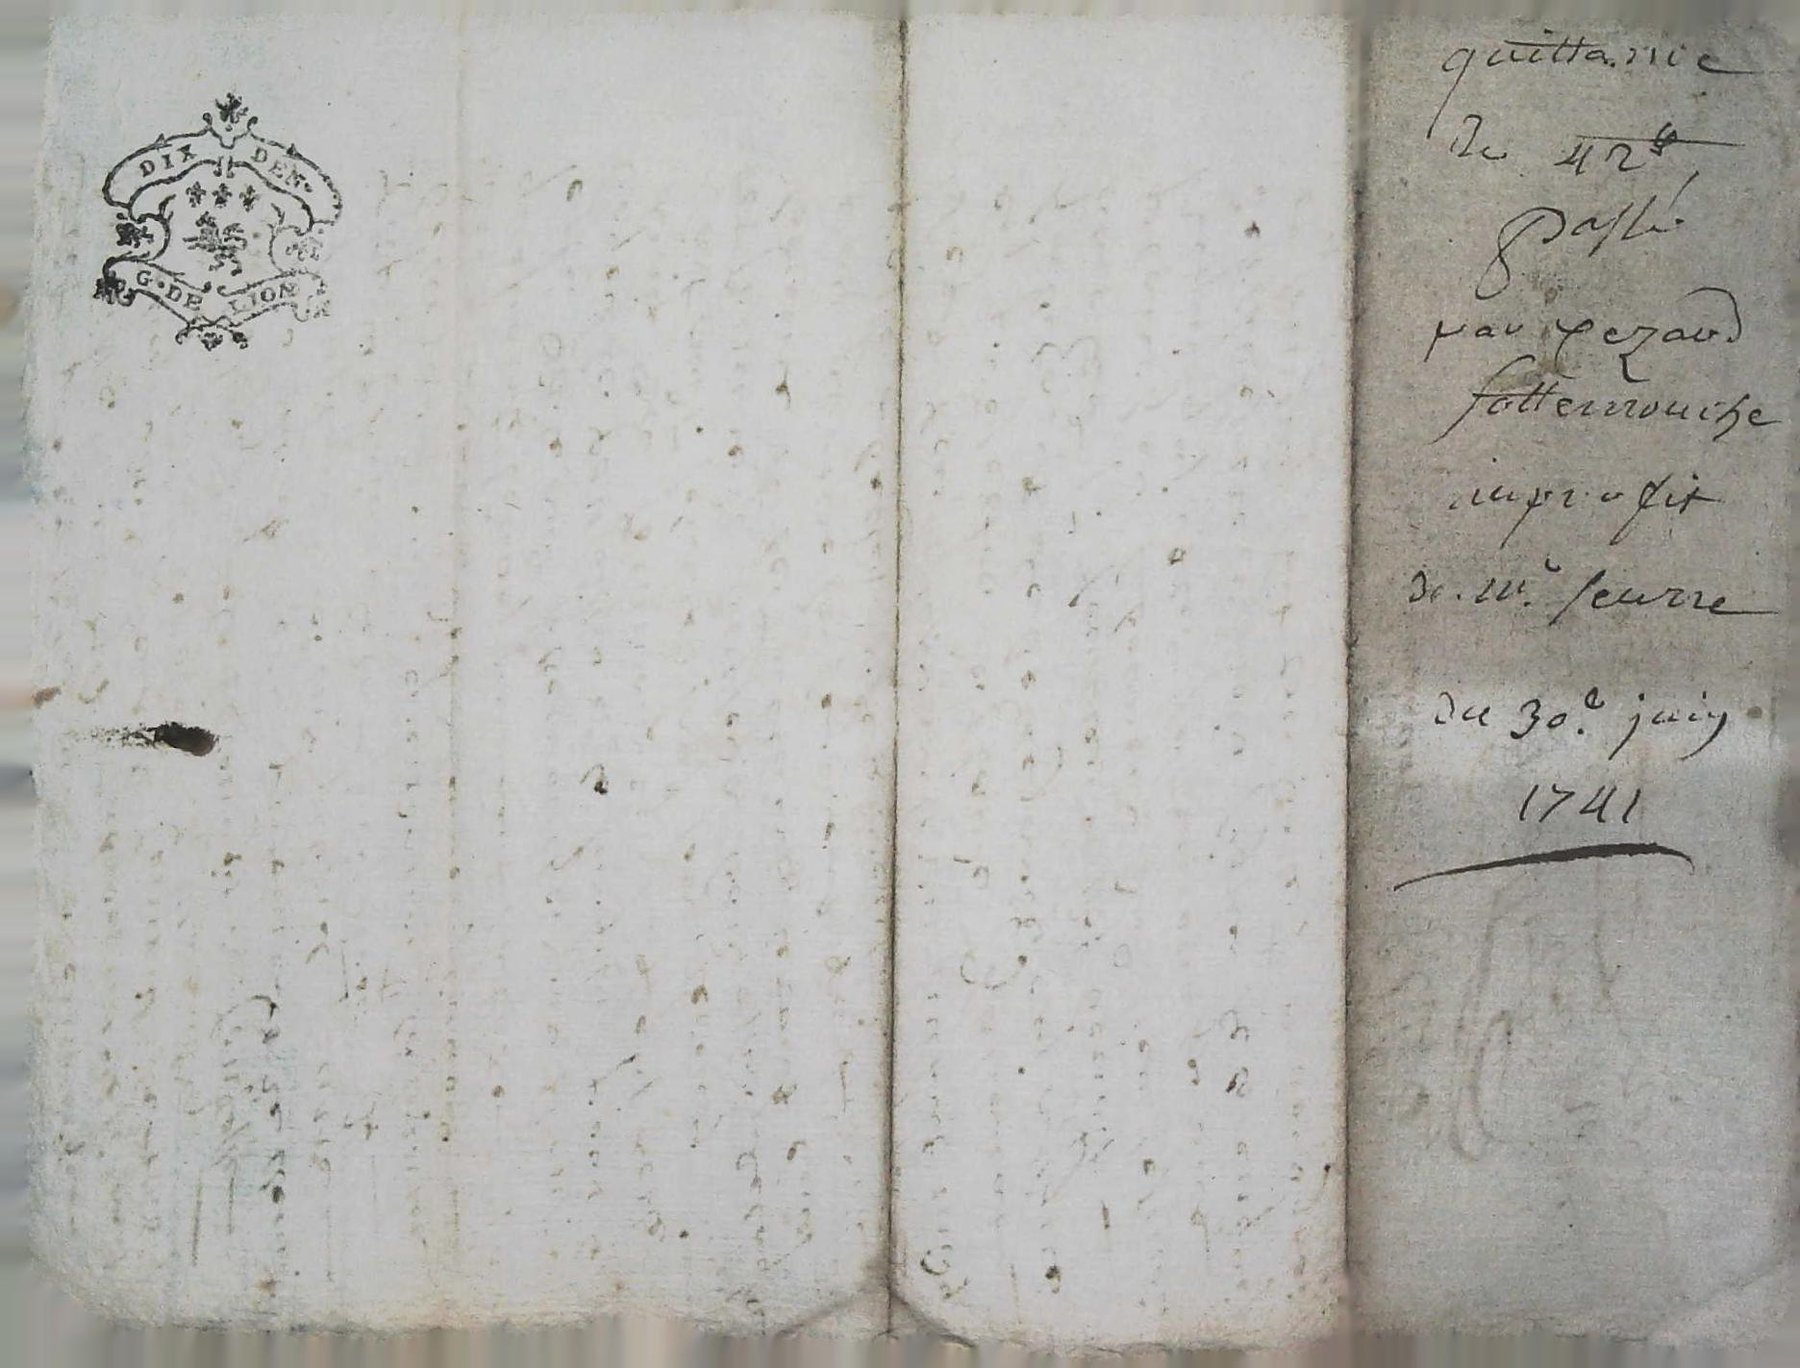 DIX DEN.
G. DE LION
quittance
de 42#
passé
par pezaud
fattemouche
au profit
de mr. seurre
du 30e. juin
1741